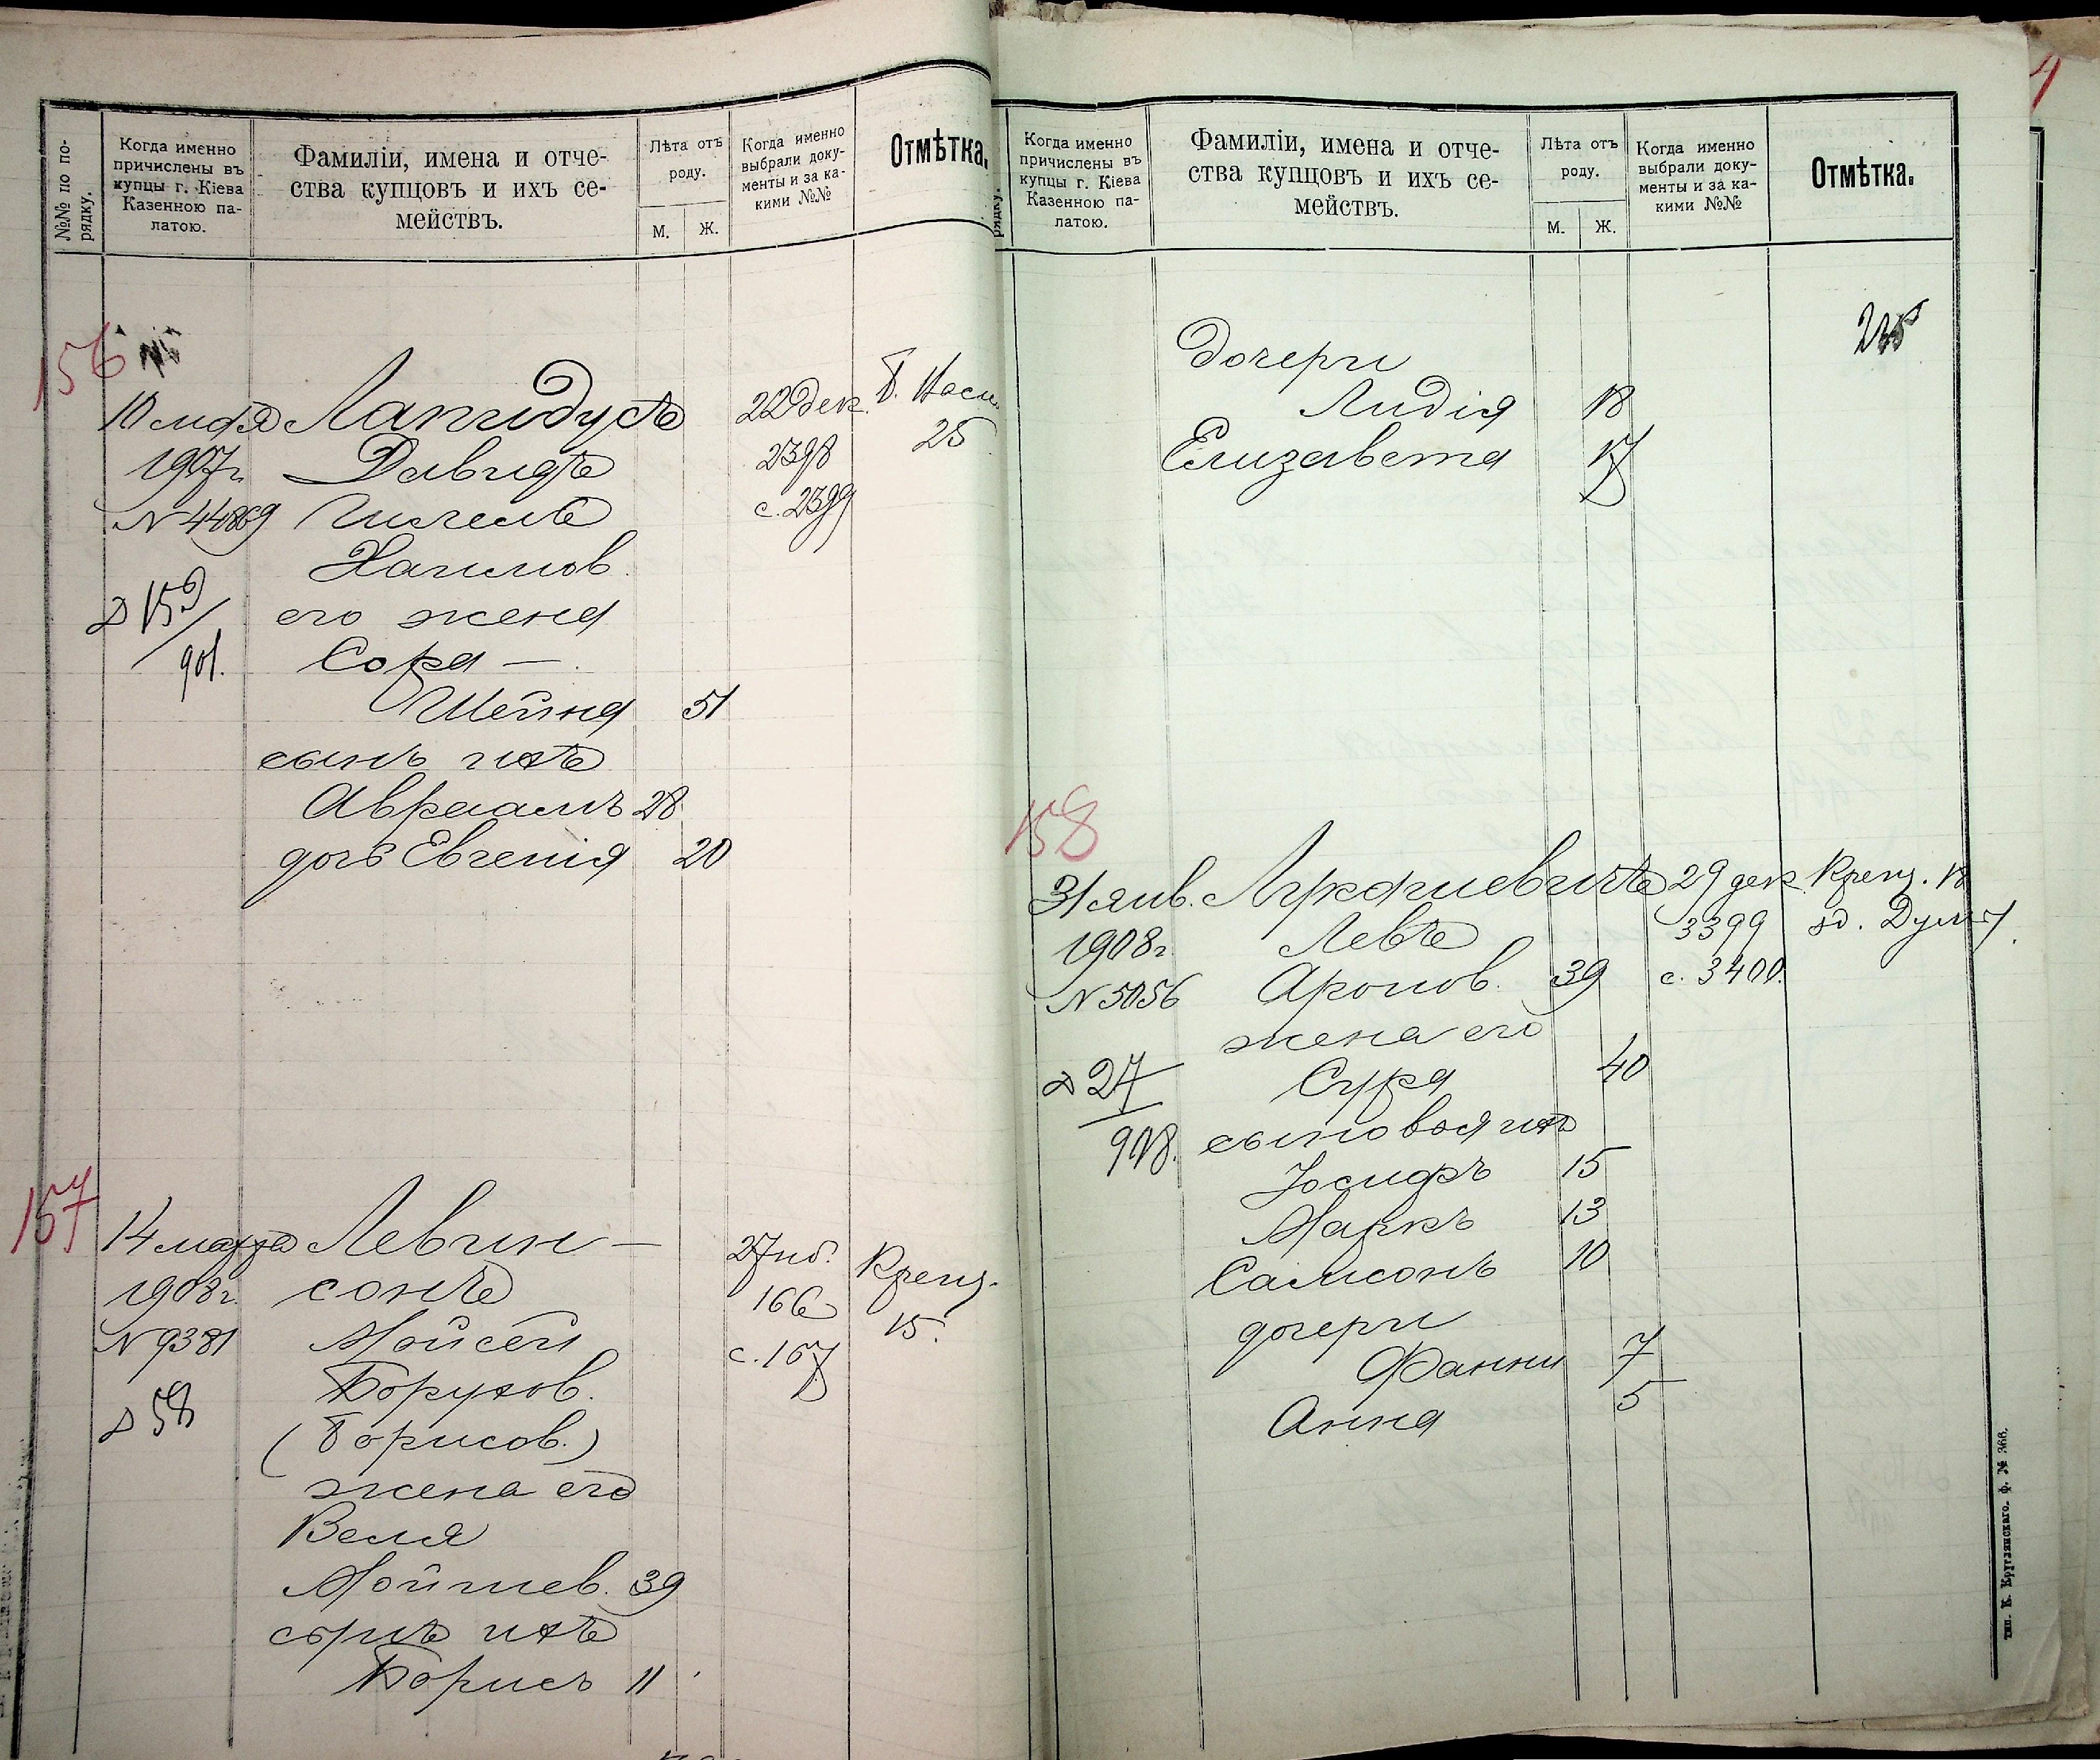 №№ по по-
рядку.
Когда именно
причислены въ
купцы г. Кіева
Казенною па-
латою.
Фамиліи, имена и отче-
ства купцовъ и ихъ се-
мействъ.
Лѣта отъ
роду.
М.
Ж.
Когда именно
выбрали доку-
менты и за ка-
кими №№
Отмѣтка.
156
Лапидусъ
1907г.
Давидъ
N 44869
Хаимов.
его жена
Сора —
901.
Шейна 51
сынъ ихъ
Авраамъ 28
дочь Евгенія 20
22 дек.
2398
с. 2399
Б. Васи.
25
157
14 марта
1908г.
N 9381
Д 58
Левин —
сонъ
Мойсей
Борухов.
(Борисов.)
жена его
Веля
Мойшев. 39
сынъ ихъ
Борисъ 11
166
с. 167
Крещ.
15.
рядку.
Когда именно
причислены въ
купцы г. Кіева
Казенною па-
латою.
Фамиліи, имена и отче-
ства купцовъ и ихъ се-
мействъ.
Лѣта отъ
роду.
М.
Ж.
Когда именно
выбрали доку-
менты и за ка-
кими №№
Отмѣтка.
дочери
Лидія 18
Елизавета 17
158
31 янв.
1908г.
N 5056
Д 27
908.
Левъ
Аронов. 39
жена его
Сура 40
сыновья ихъ
Іосифъ 15
Маркъ 13
Самсонъ 10
дочери
Фанни 7
Анна 5
29 дек.
3399
с. 3400.
Крещ. 18
зд. Думы.
тип. К. Круглянскаго. ф. № 366.